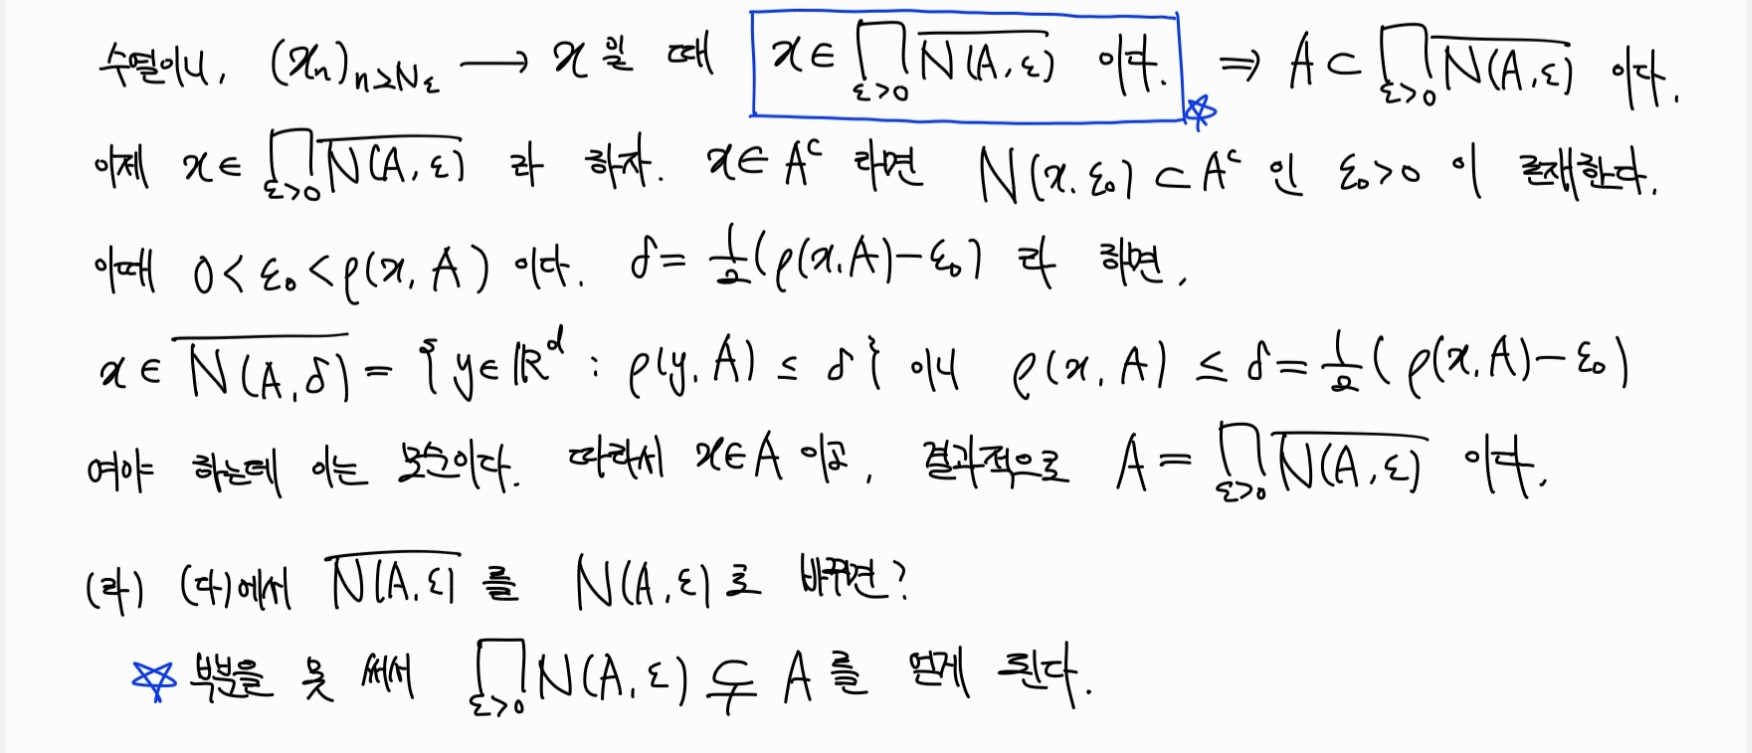 수열이니, (xₙ)ₙ≥N_ε ⟶ x 일 때 x ∈ ⋂_{ε>0} \overline{N(A, ε)} 이다. ⇒ A ⊂ ⋂_{ε>0} \overline{N(A, ε)} 이다.
이제 x ∈ ⋂_{ε>0} \overline{N(A, ε)} 라 하자. x ∈ Aᶜ 라면 N(x, ε₀) ⊂ Aᶜ 인 ε₀>0 이 존재한다.
이때 0 < ε₀ < ρ(x, A) 이다. δ = ½(ρ(x, A) − ε₀) 라 하면,
x ∈ \overline{N(A, δ)} = {y ∈ ℝᵈ : ρ(y, A) ≤ δ} 이니 ρ(x, A) ≤ δ = ½(ρ(x, A) − ε₀)
여야 하는데 이는 모순이다. 따라서 x ∈ A 이고, 결과적으로 A = ⋂_{ε>0} \overline{N(A, ε)} 이다.
(라) (다)에서 \overline{N(A, ε)} 를 N(A, ε) 로 바꾸면?
☆ 부분을 못 써서 ⋂_{ε>0} N(A, ε) ⊊ A 를 얻게 된다.